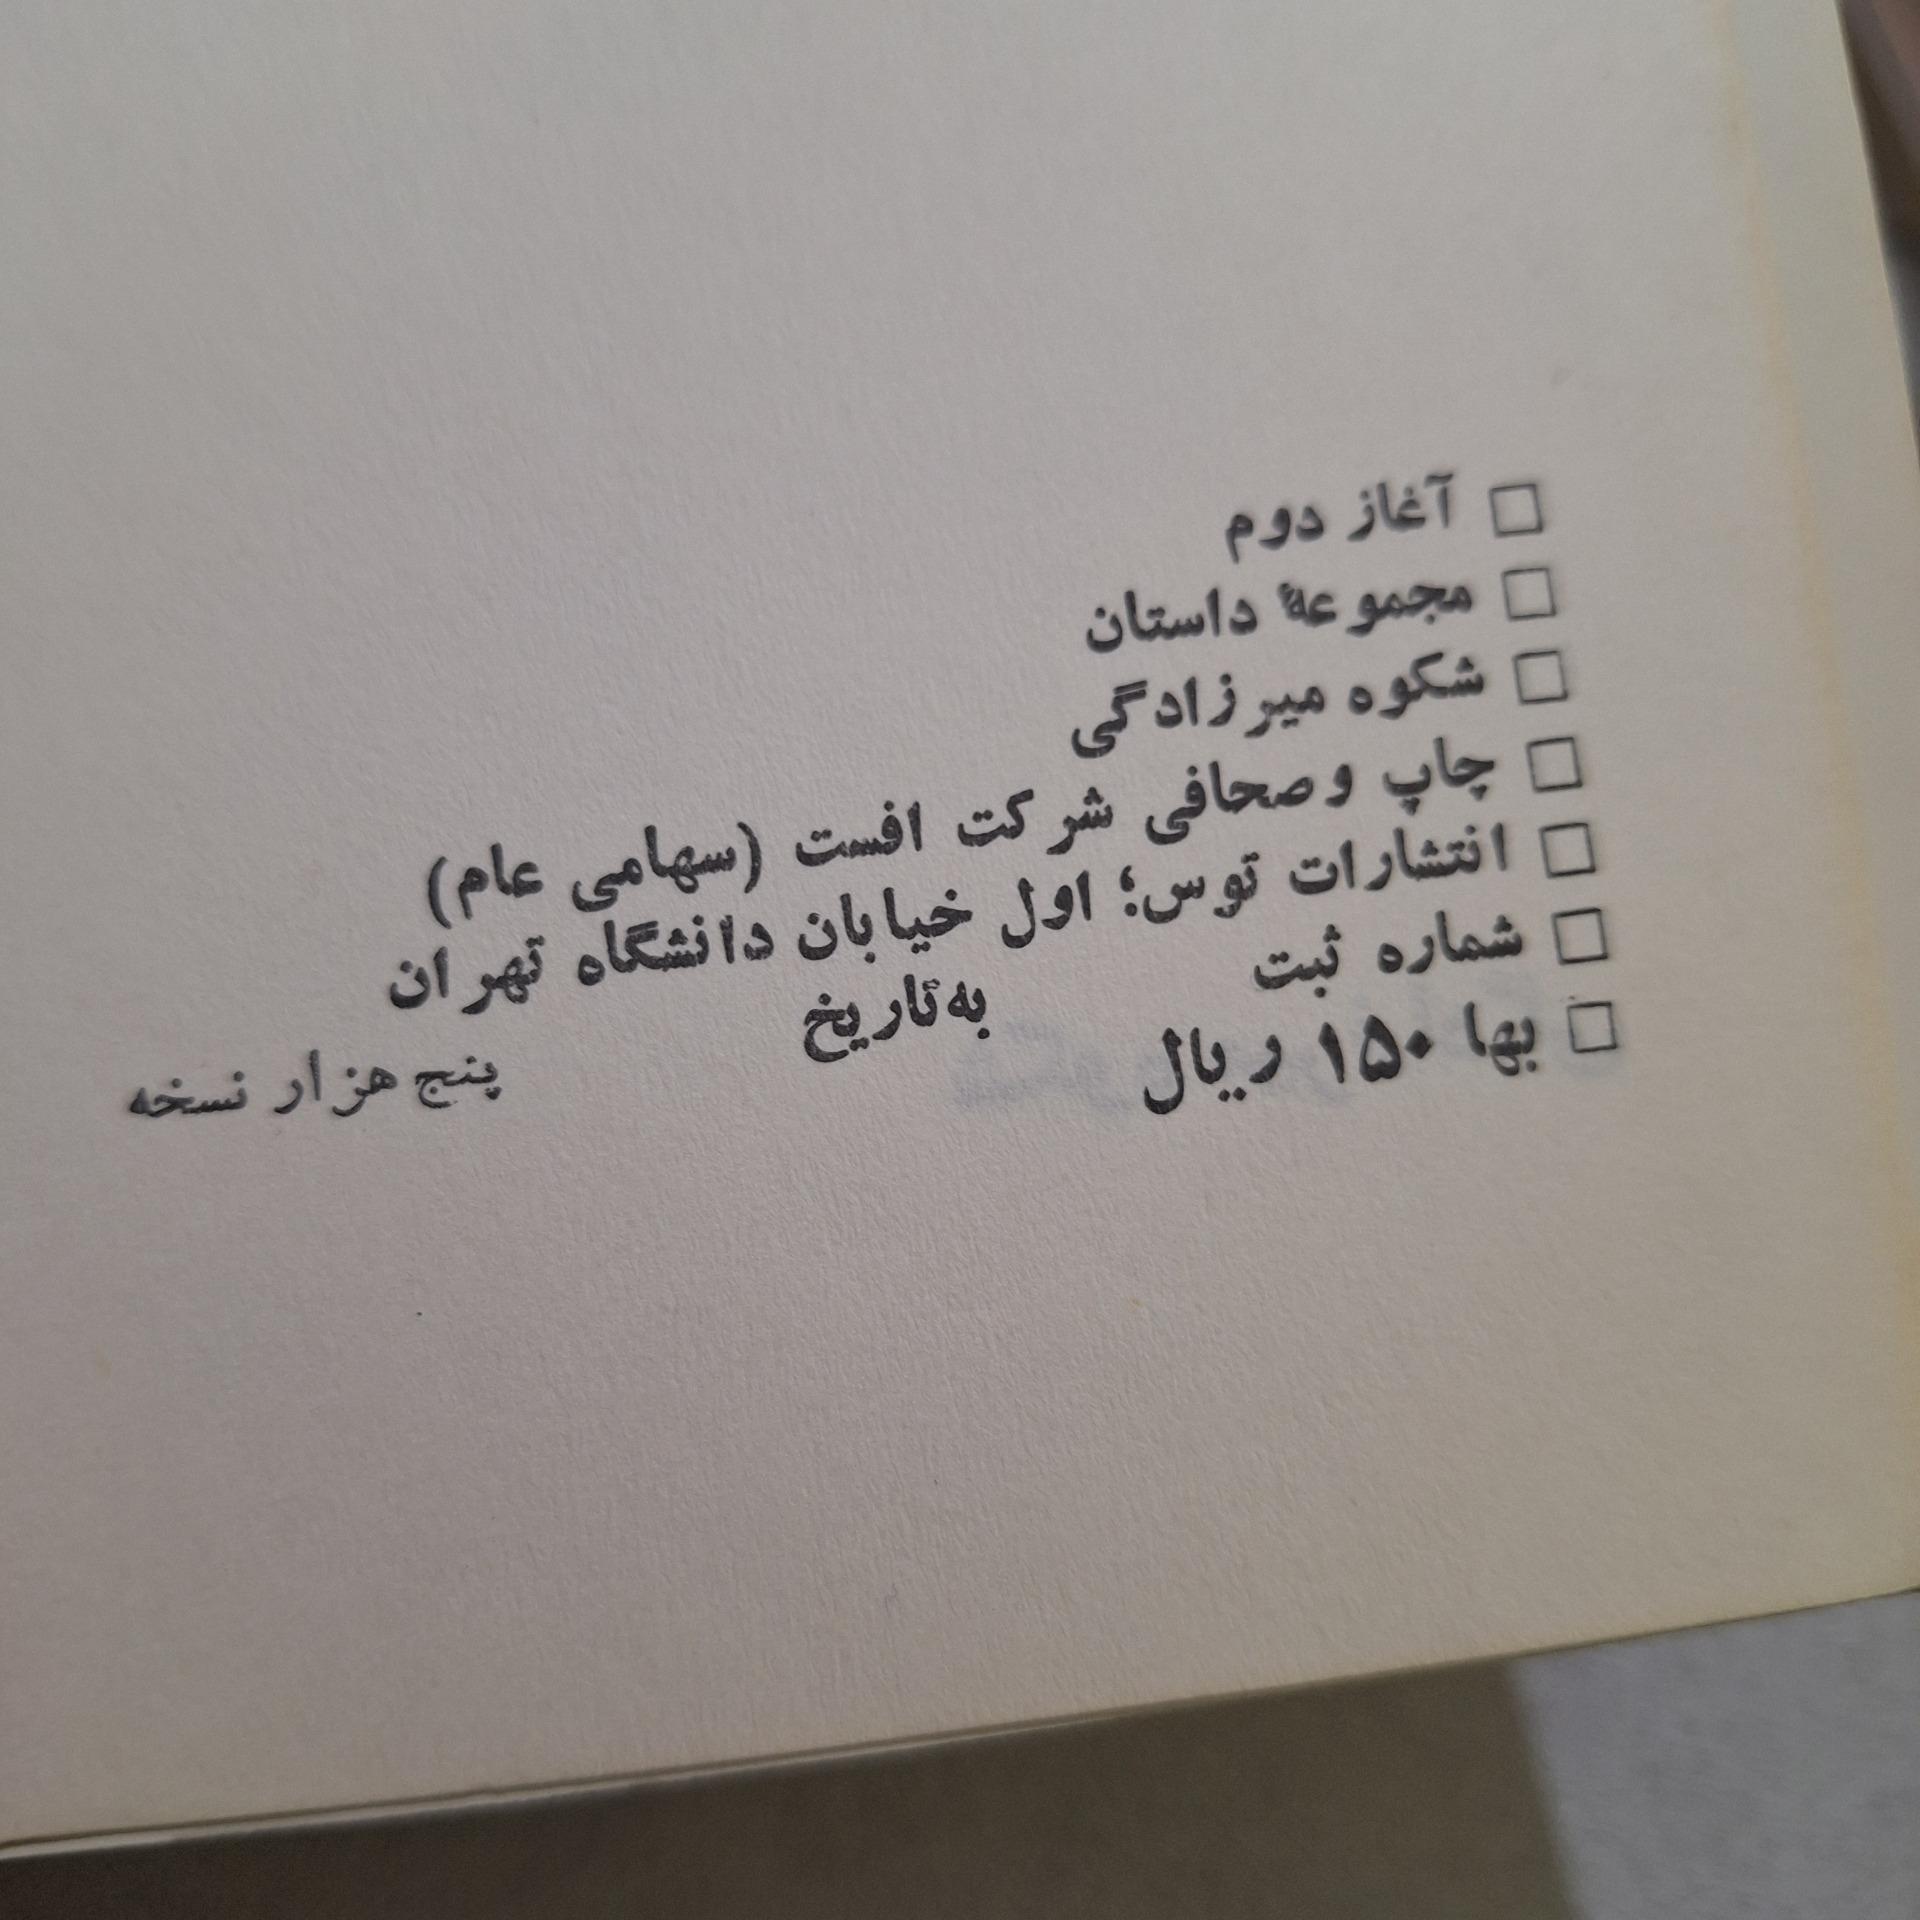 □ آغاز دوم
□ مجموعهٔ داستان
□ شکوه میرزادگی
□ چاپ وصحافی شرکت افست (سهامی عام)
□ انتشارات توس؛ اول خیابان دانشگاه تهران
□ شماره ثبت به‌تاریخ
□ بها ۱۵۰ ریال پنج هزار نسخه